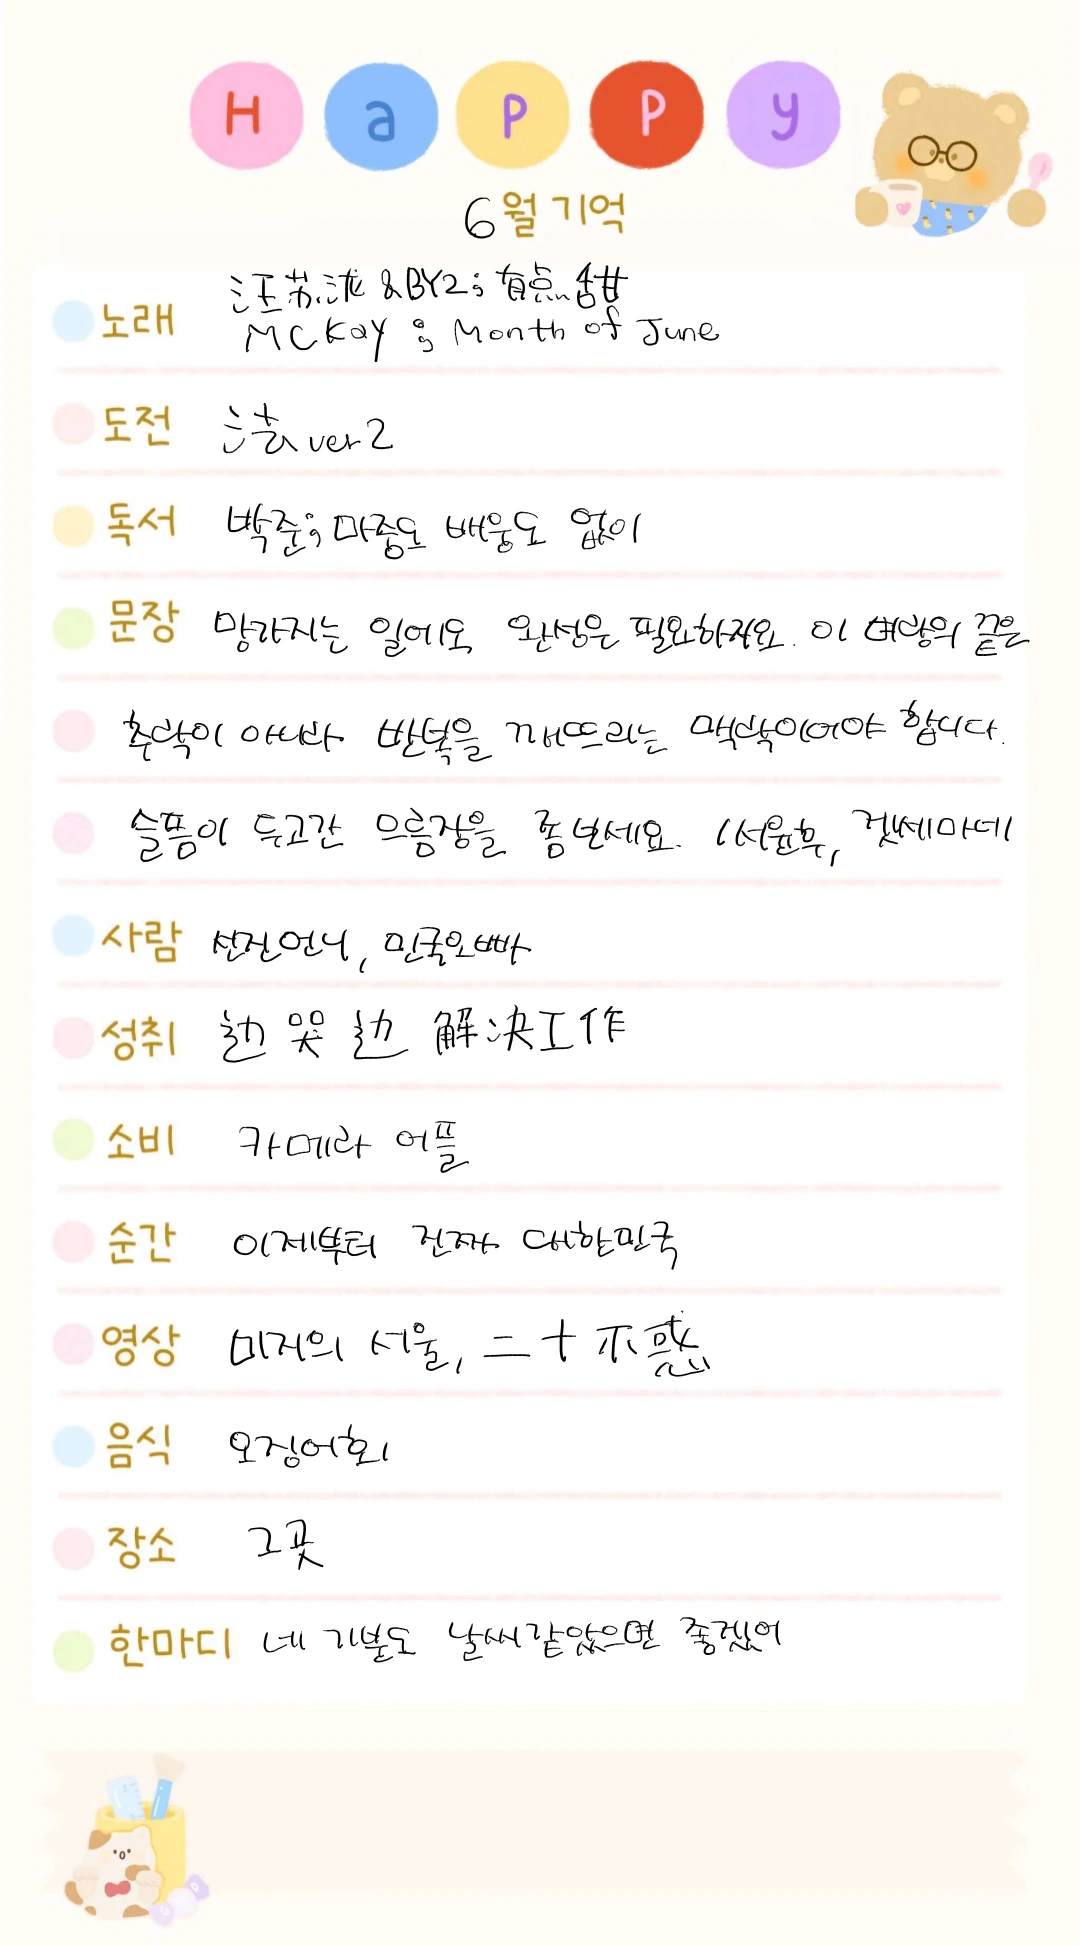 Happy
6월 기억
노래 汪苏泷 &BY2; 有点甜
MCKay ; Month of June
도전 法 ver 2
독서 박준; 마중도 배웅도 없이
문장 망가지는 일에도 완성은 필요하지요. 이 벼랑의 끝은
추락이 아니라 반복을 깨뜨리는 맥락이어야 합니다.
슬픔이 두고간 으름장을 좀 보세요. (서윤후, 겟세마네
사람 선진언니, 민국오빠
성취 边 哭 边 解决工作
소비 카메라 어플
순간 이제부터 진짜 대한민국
영상 미지의 서울, 二十不惑
음식 오징어회
장소 그곳
한마디 네 기분도 날씨같았으면 좋겠어